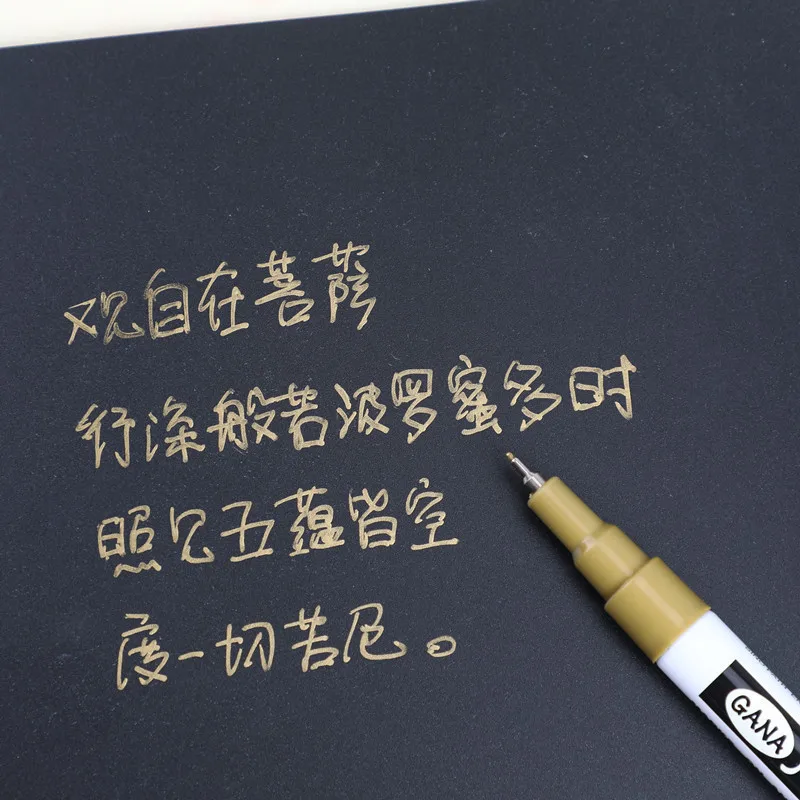 观自在菩萨
行深般若波罗蜜多时
照见五蕴皆空
度一切苦厄。
GANA